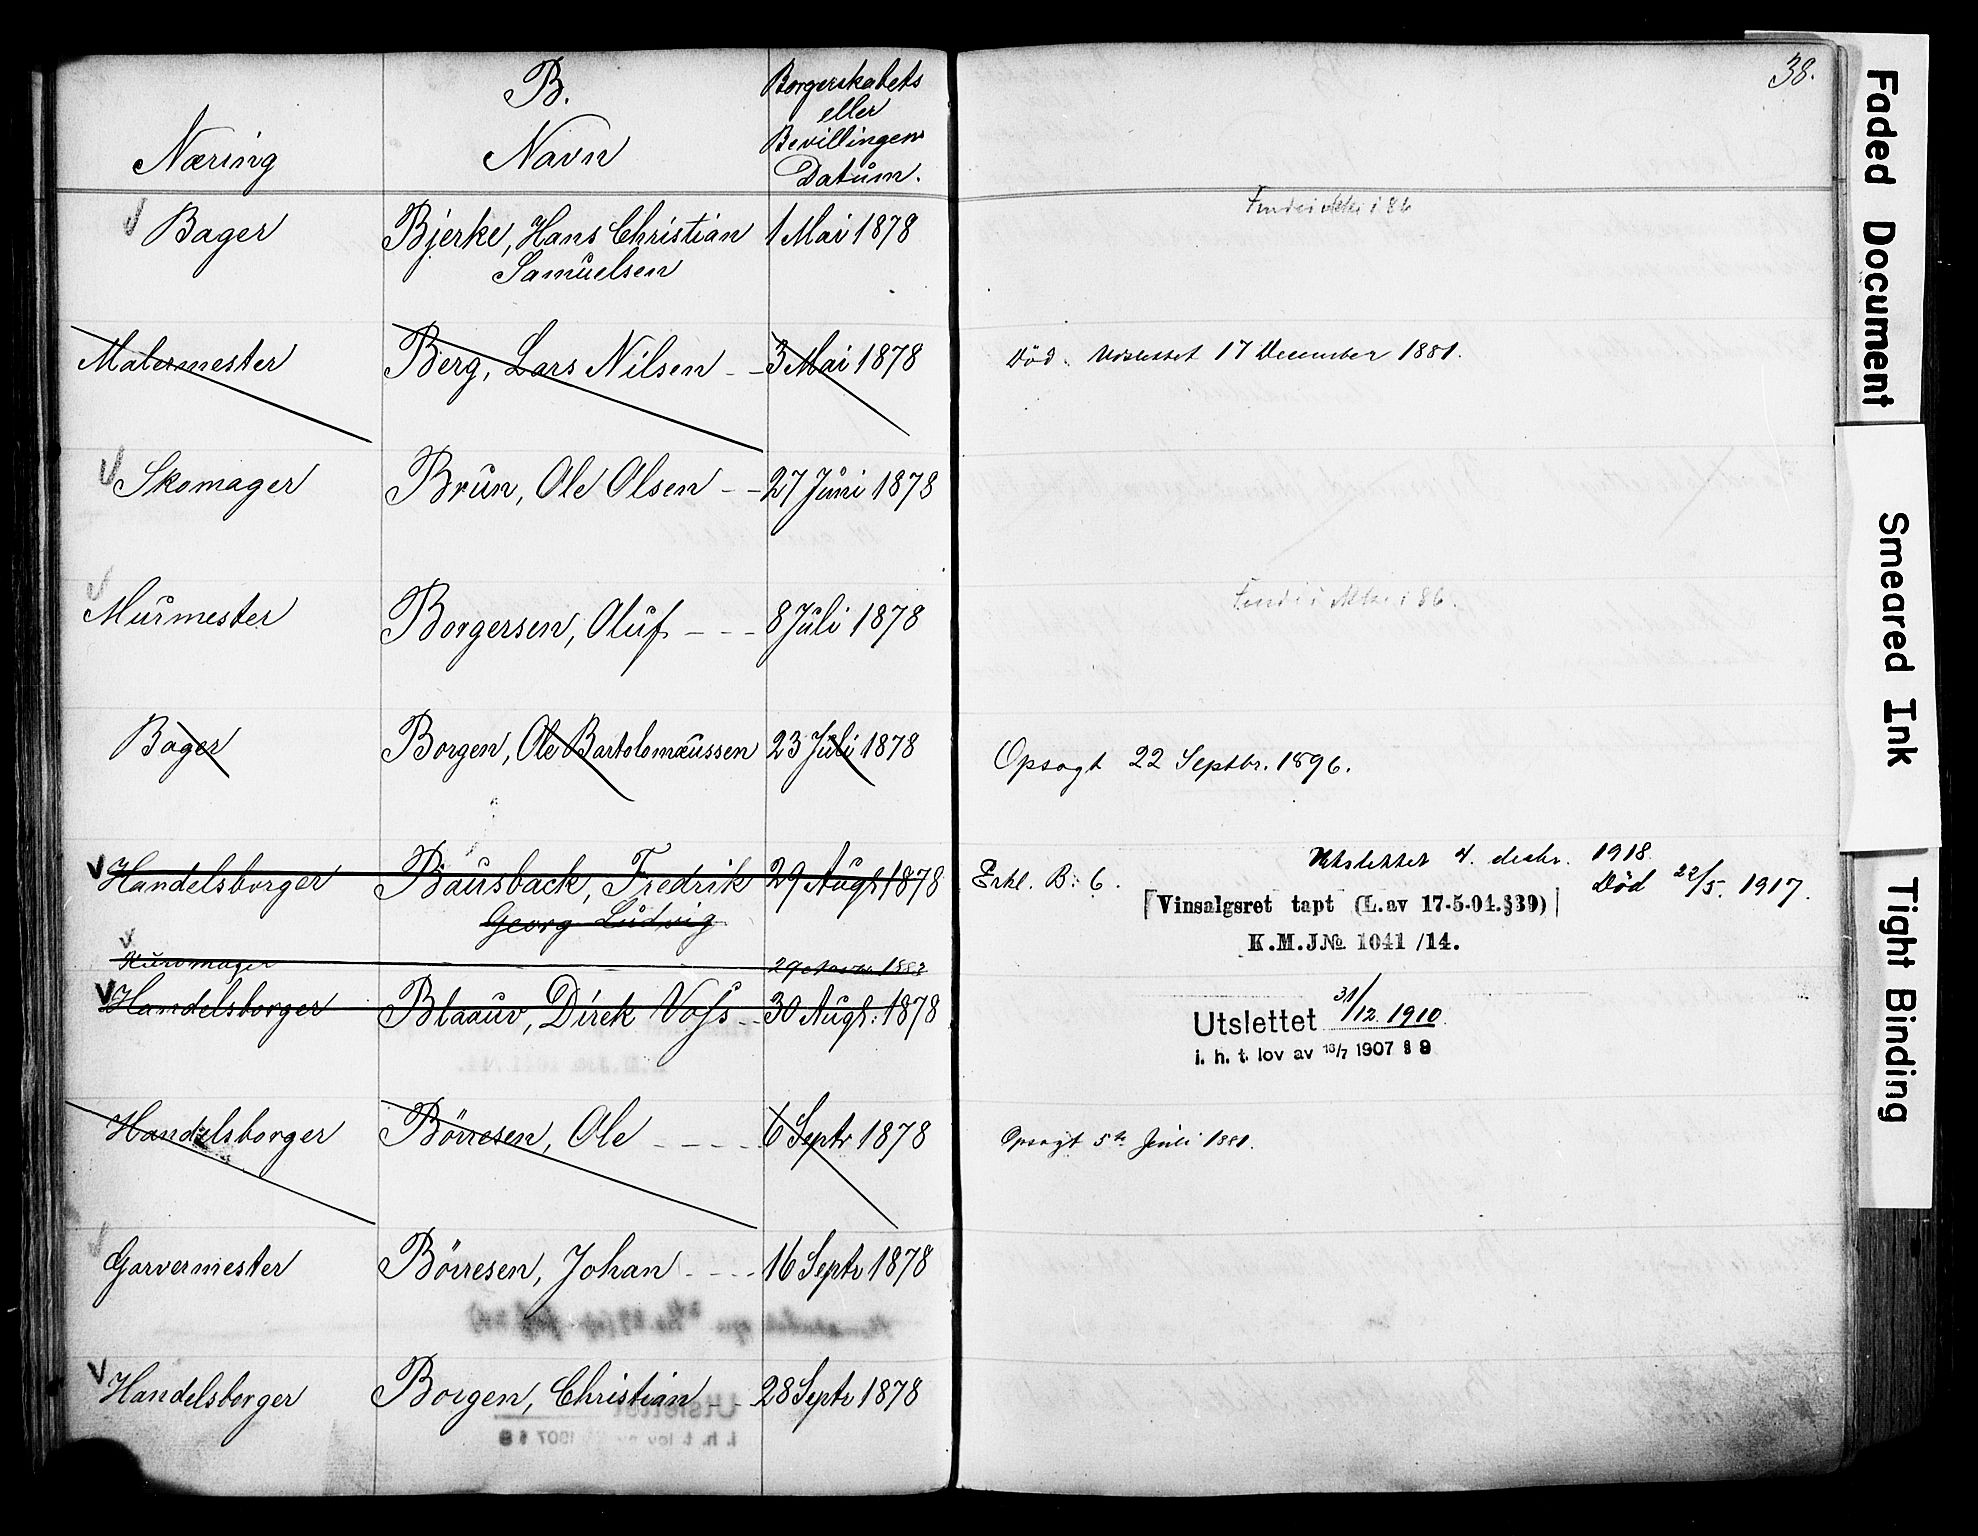 B.
Næring
Navn
Borgerskabets
eller
Bevillingens
Datum.
38.
Bager Bjerke, Hans Christian 1 Mai 1878
Samuelsen
Malermester Berg, Lars Nilsen - - 3 Mai 1878 Død. Udslettet 17 December 1881.
Skomager Brun, Ole Olsen - - 27 Juni 1878
Murmester Borgersen, Oluf - - - 8 Juli 1878
Bager Borgen, Ole Bartolomæussen 23 Juli 1878 Opsagt 22 Septbr. 1896.
Handelsborger Bausback, Fredrik 29 Augt 1878 Erkl. B: 6. Utslettet 4. decbr. 1918.
Georg Ludvig
Død 22/5. 1917.
Vinsalgsret tapt (L.av 17-5-04.§39)
K.M.J№ 1041 /14.
Handelsborger Blaauw, Dirck Voss - - 30 Augt: 1878
Utslettet 31/12. 1910.
i. h. t. lov av 16/7 1907 § 9
Handelsborger Börresen, Ole - - - - 6 Septr 1878 Opsagt 5te Juli 1881.
Garvermester Börresen, Johan - - - - 16 Septr 1878
Handelsborger Borgen, Christian - - 28 Septr 1878
Faded Document
Smeared Ink
Tight Binding